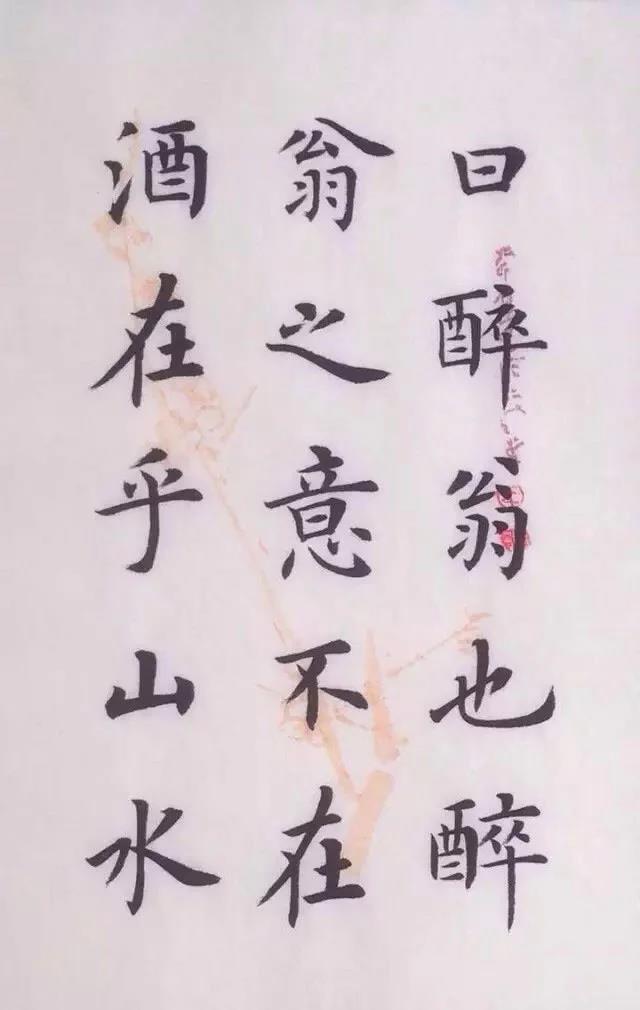 曰醉翁也醉
翁之意不在
酒在乎山水